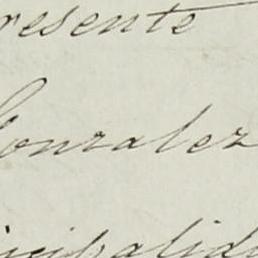 resente
Gonzalez
icipalida